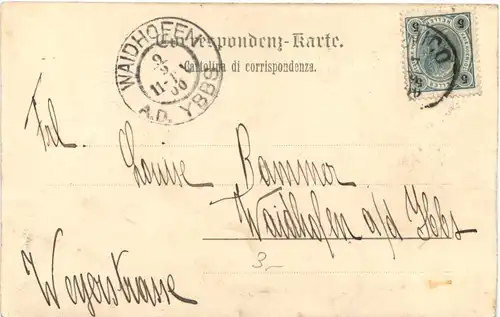 Correspondenz-Karte.
Cartolina di corrispondenza.
WAIDHOFEN
A.D. YBBS
5 5
5 5
Frl.
Louise Bammer
Waidhofen a/d Ybbs
Weyerstrasse
3,-